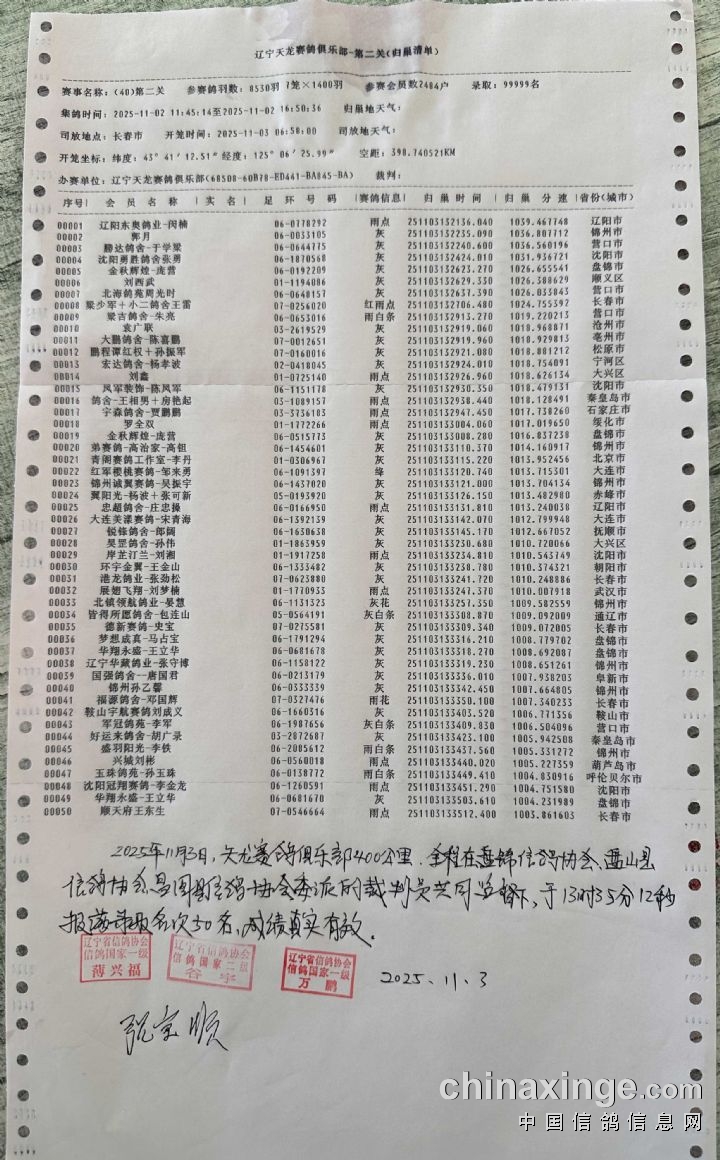 辽宁天龙赛鸽俱乐部-第二关(归巢清单)
赛事名称：(40)第二关 参赛鸽羽数：8530羽 7笼×1400羽 参赛会员数2484户 录取：99999名
集鸽时间：2025-11-02 11:45:14至2025-11-02 16:50:36 归巢地天气：
司放地点：长春市 开笼时间：2025-11-03 06:58:00 司放地天气：
开笼坐标：纬度：43°41′12.51″经度：125°06′25.99″ 空距：398.740521KM
办赛单位：辽宁天龙赛鸽俱乐部(685D8-60B78-ED441-BA845-BA) 裁判：
序号| 会员名称 |实名| 足环号码 |赛鸽信息| 归巢时间 |归巢分速 |省份(城市)
00001 辽阳东奥鸽业-闵楠 06-0778292 雨点 251103132136.040 1039.467748 辽阳市
00002 郭月 06-0033105 灰 251103132235.090 1036.807712 锦州市
00003 腾达鸽舍-于学梁 06-0644775 灰 251103132240.600 1036.560196 营口市
00004 沈阳勇胜鸽舍张勇 06-1870568 灰 251103132424.010 1031.936721 沈阳市
00005 金秋辉煌-庞营 06-0192209 灰 251103132623.270 1026.655541 盘锦市
00006 刘西武 01-1194086 灰 251103132629.330 1026.388629 顺义区
00007 北海鸽苑周光时 06-0648157 灰 251103132637.390 1026.033843 营口市
00008 梁少军+小二鸽舍王雷 07-0256020 红雨点 251103132706.480 1024.755392 长春市
00009 梁吉鸽舍-朱亮 06-0653016 雨白条 251103132913.270 1019.220213 营口市
00010 袁广联 03-2619529 灰 251103132919.060 1018.968871 沧州市
00011 大鹏鸽舍-陈喜鹏 07-0012651 灰 251103132919.960 1018.929813 亳州市
00012 鹏程谭红权+孙振军 07-0160016 灰 251103132921.080 1018.881212 松原市
00013 宏达鸽舍-杨孝波 02-0418045 灰 251103132924.010 1018.754091 宁河区
00014 刘鑫 01-0725140 雨点 251103132926.960 1018.626134 大兴区
00015 凤军装饰-陈凤军 06-1151178 灰 251103132930.350 1018.479131 沈阳市
00016 鸽舍-王相男+房艳起 03-1089157 雨点 251103132938.440 1018.128491 秦皇岛市
00017 宇森鸽舍-贾鹏鹏 03-3736183 雨点 251103132947.450 1017.738260 石家庄市
00018 罗全双 01-1772266 雨点 251103133004.060 1017.019650 绥化市
00019 金秋辉煌-庞营 06-0515773 灰 251103133008.280 1016.837238 盘锦市
00020 弟赛鸽-高治家-高钽 06-1454601 灰 251103133110.370 1014.160917 锦州市
00021 青阁赛鸽工作室-李丹 01-0306967 灰 251103133115.220 1013.952456 北京市
00022 红军樱桃赛鸽-邹来勇 06-1091397 绛 251103133120.740 1013.715301 大连市
00023 锦州诚翼赛鸽-吴振宇 06-1437020 灰 251103133121.000 1013.704134 锦州市
00024 翼阳光-杨波+张可新 05-0193920 灰 251103133126.150 1013.482980 赤峰市
00025 忠超鸽舍-庄忠操 06-0166950 雨点 251103133131.810 1013.240038 辽阳市
00026 大连美漾赛鸽-宋青海 06-1392139 灰 251103133142.070 1012.799948 大连市
00027 锐锋鸽舍-郎阔 06-1630638 灰 251103133145.170 1012.667052 抚顺市
00028 昊罡鸽舍-孙伟 01-1863959 灰 251103133230.680 1010.720066 大兴区
00029 岸芷汀兰-刘湘 01-1917258 雨点 251103133234.810 1010.543749 沈阳市
00030 环宇金翼-王金山 06-1333482 灰 251103133238.780 1010.374321 朝阳市
00031 港龙鸽业-张劲松 07-0623880 灰 251103133241.720 1010.248886 长春市
00032 展翅飞翔-刘梦楠 01-1770933 雨点 251103133247.370 1010.007918 武汉市
00033 北镇领航鸽业-晏慧 06-1131323 灰花 251103133257.350 1009.582559 锦州市
00034 皆得所愿鸽舍-包连山 05-0564191 灰白条 251103133308.870 1009.092009 通辽市
00035 德新赛鸽-史宝 07-0275581 灰 251103133309.340 1009.072005 长春市
00036 梦想成真-马占宝 06-1791294 灰 251103133316.210 1008.779702 盘锦市
00037 华翔永盛-王立华 06-0681678 灰 251103133318.270 1008.692087 盘锦市
00038 辽宁华藏鸽业-张守博 06-1158122 灰 251103133319.230 1008.651261 锦州市
00039 国强鸽舍--唐国君 06-0213179 灰 251103133336.010 1007.938203 阜新市
00040 锦州孙乙馨 06-0333339 灰 251103133342.450 1007.664805 锦州市
00041 福源鸽舍-邓国辉 07-0327476 雨花 251103133350.100 1007.340233 长春市
00042 鞍山宇航赛鸽刘成义 06-1660316 灰 251103133403.520 1006.771356 鞍山市
00043 军冠鸽苑-李军 06-1987656 灰白条 251103133409.830 1006.504096 营口市
00044 好运来鸽舍-胡广录 03-2872687 灰 251103133423.100 1005.942508 秦皇岛市
00045 盛羽阳光-李铁 06-2005612 雨白条 251103133437.560 1005.331272 锦州市
00046 兴城刘彬 06-0560018 雨点 251103133440.020 1005.227359 葫芦岛市
00047 玉珠鸽苑-孙玉珠 06-0138772 雨白条 251103133449.410 1004.830916 呼伦贝尔市
00048 沈阳冠翔赛鸽-李金龙 06-1260591 雨点 251103133451.290 1004.751580 沈阳市
00049 华翔永盛-王立华 06-0681670 灰 251103133503.610 1004.231989 盘锦市
00050 顺天府王东生 07-0546664 雨点 251103133512.400 1003.861603 长春市
2025年11月3日，天龙赛鸽俱乐部400公里，全程在盘锦信鸽协会、盘山县
信鸽协会、昌图县信鸽协会委派的裁判员共同监督下，于13时35分12秒
报满录取名次50名，成绩真实有效。
辽宁省信鸽协会
信鸽国家一级
薄兴福
辽宁省信鸽协会
信鸽国家二级
辽宁省信鸽协会
信鸽国家一级
万鹏
2025、11.3
chinaxinge.com
中国信鸽信息网